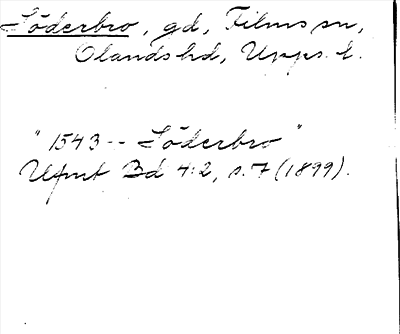 Söderbro, gd, Films sn,
Olands hd, Upps. l.
"1543 -- Söderbro"
Ufmt Bd 4:2, s. 7 (1899).